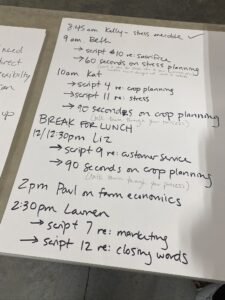 need
direct
up
8:45 am Kelly - stress anecdote ✓
9 am Beth
→ script #10 re: sacrifice
→ 60 seconds on stress planning
10am Kat
→ script 4 re: crop planning
→ script 11 re: stress
→ 90 seconds on crop planning
(talk them through your process)
BREAK FOR LUNCH
12/12:30pm Liz
→ script 9 re: customer service
→ 90 seconds on crop planning
(talk them through your process)
2pm Paul on farm economics
2:30pm Lauren
→ script 7 re: marketing
→ script 12 re: closing words